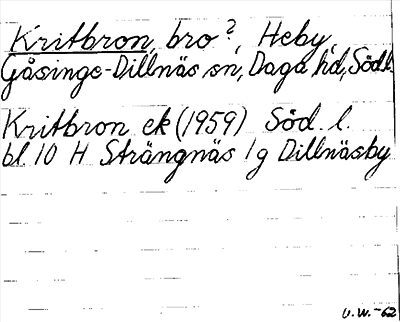 Kritbron, bro?, Heby,
Gåsinge-Dillnäs sn, Daga hd, Södl.
Kritbron ek (1959) Söd. l.
bl. 10 H Strängnäs 1g Dillnäsby
U.W.-62